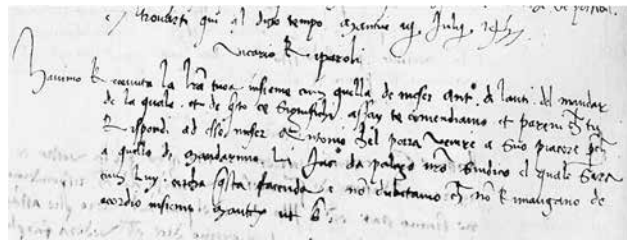 trovarti qui al dicto tempo Mantue
Vicario Reparoli
Havimo Receuuta la lr̃a tuoa insieme cum quella de meser Ant.º di lanti del mandar
de la quale et de q̃to ce significhi assay te comendiamo et
Rispondi ad esso meser Antonio chel porra venire a suo piacere
a quello di mandaremo li da palazo nr̃o sindico el quale sera
cum luy circha q̃sta facenda e nõ dubitamo ch̃ nõ Rimangano de
acordio insieme Mantue ut